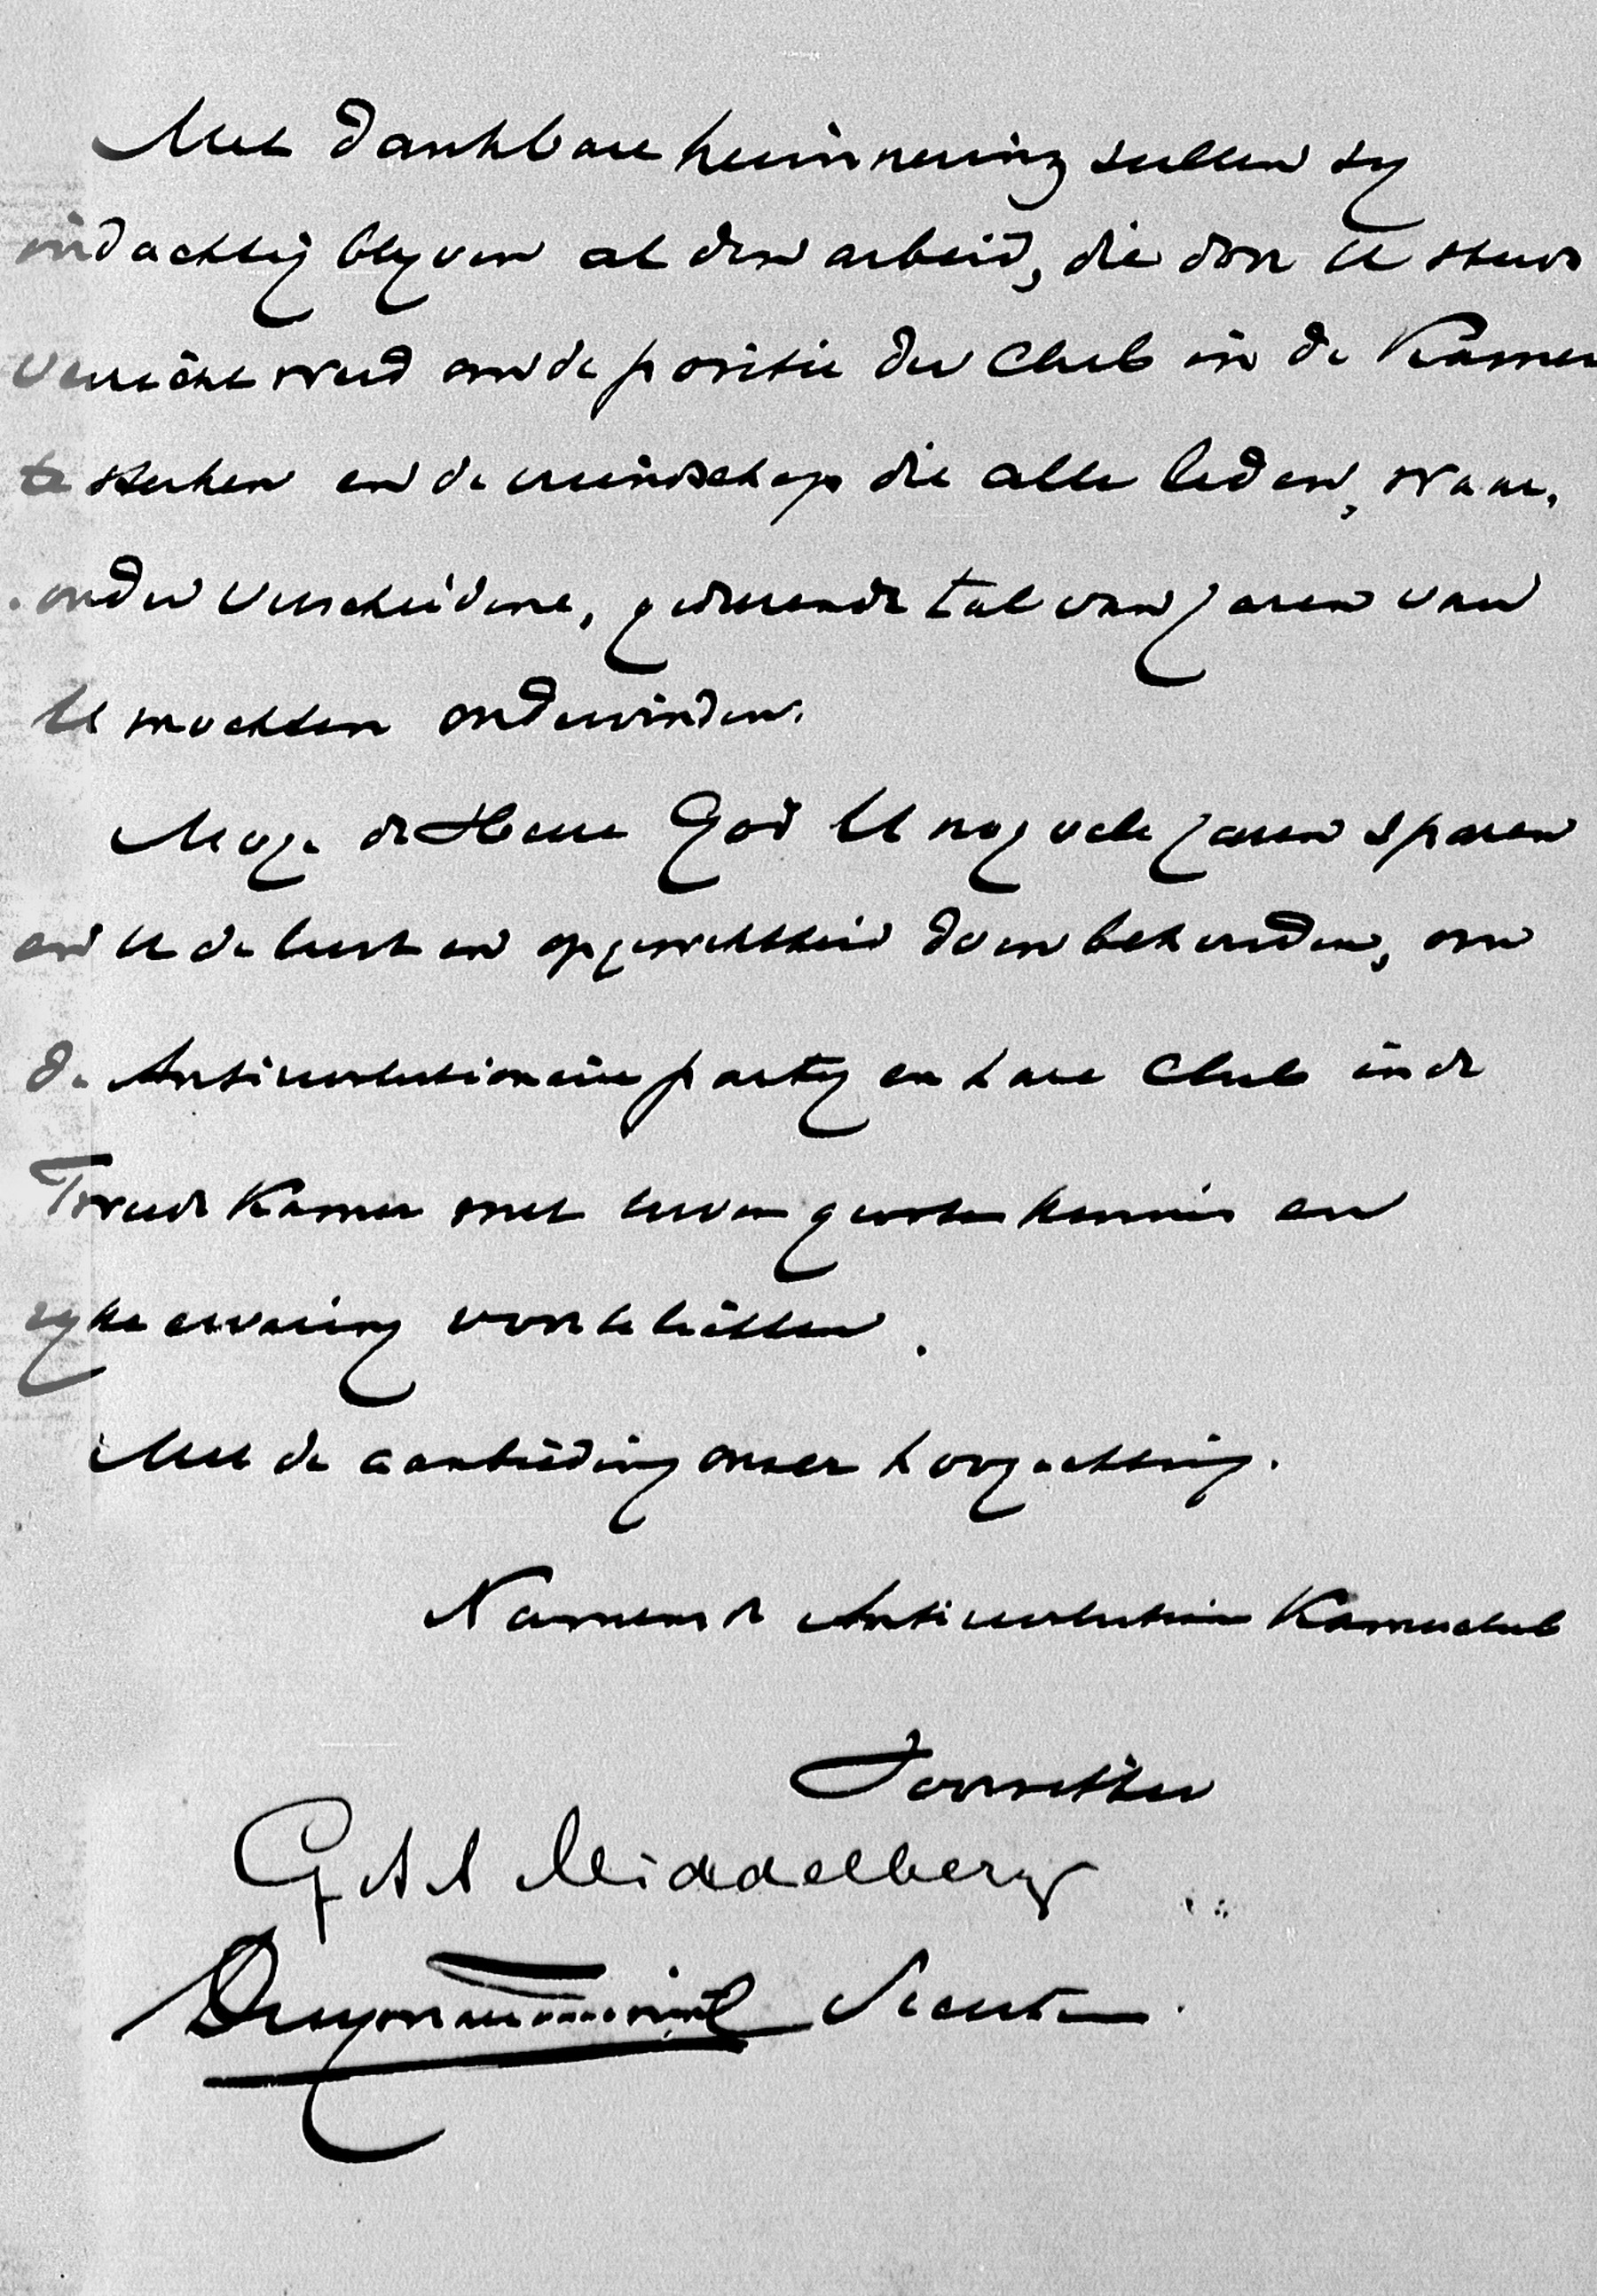 Met dankbare herinnering zullen zy
indachtig blyven al den arbeid, die door U steeds
verricht werd om de positie der Club in de Kamer
te sterken en de vriendschap die alle leden, waar-
onder verscheidene, gedurende tal van jaren van
U mochten ondervinden.
Moge de Heere God U nog vele jaren sparen
en U de lust en opgewektheid doen behouden, om
de Antirevolutionaire party en hare Club in de
Tweede Kamer met uwe groote kennis en
ryke ervaring voor te lichten.
Met de aanbieding onzer hoogachting.
Namens de Antirevolution Kamerclub
Voorzitter
G A A Middelberg
Duymaer van Twist Secret